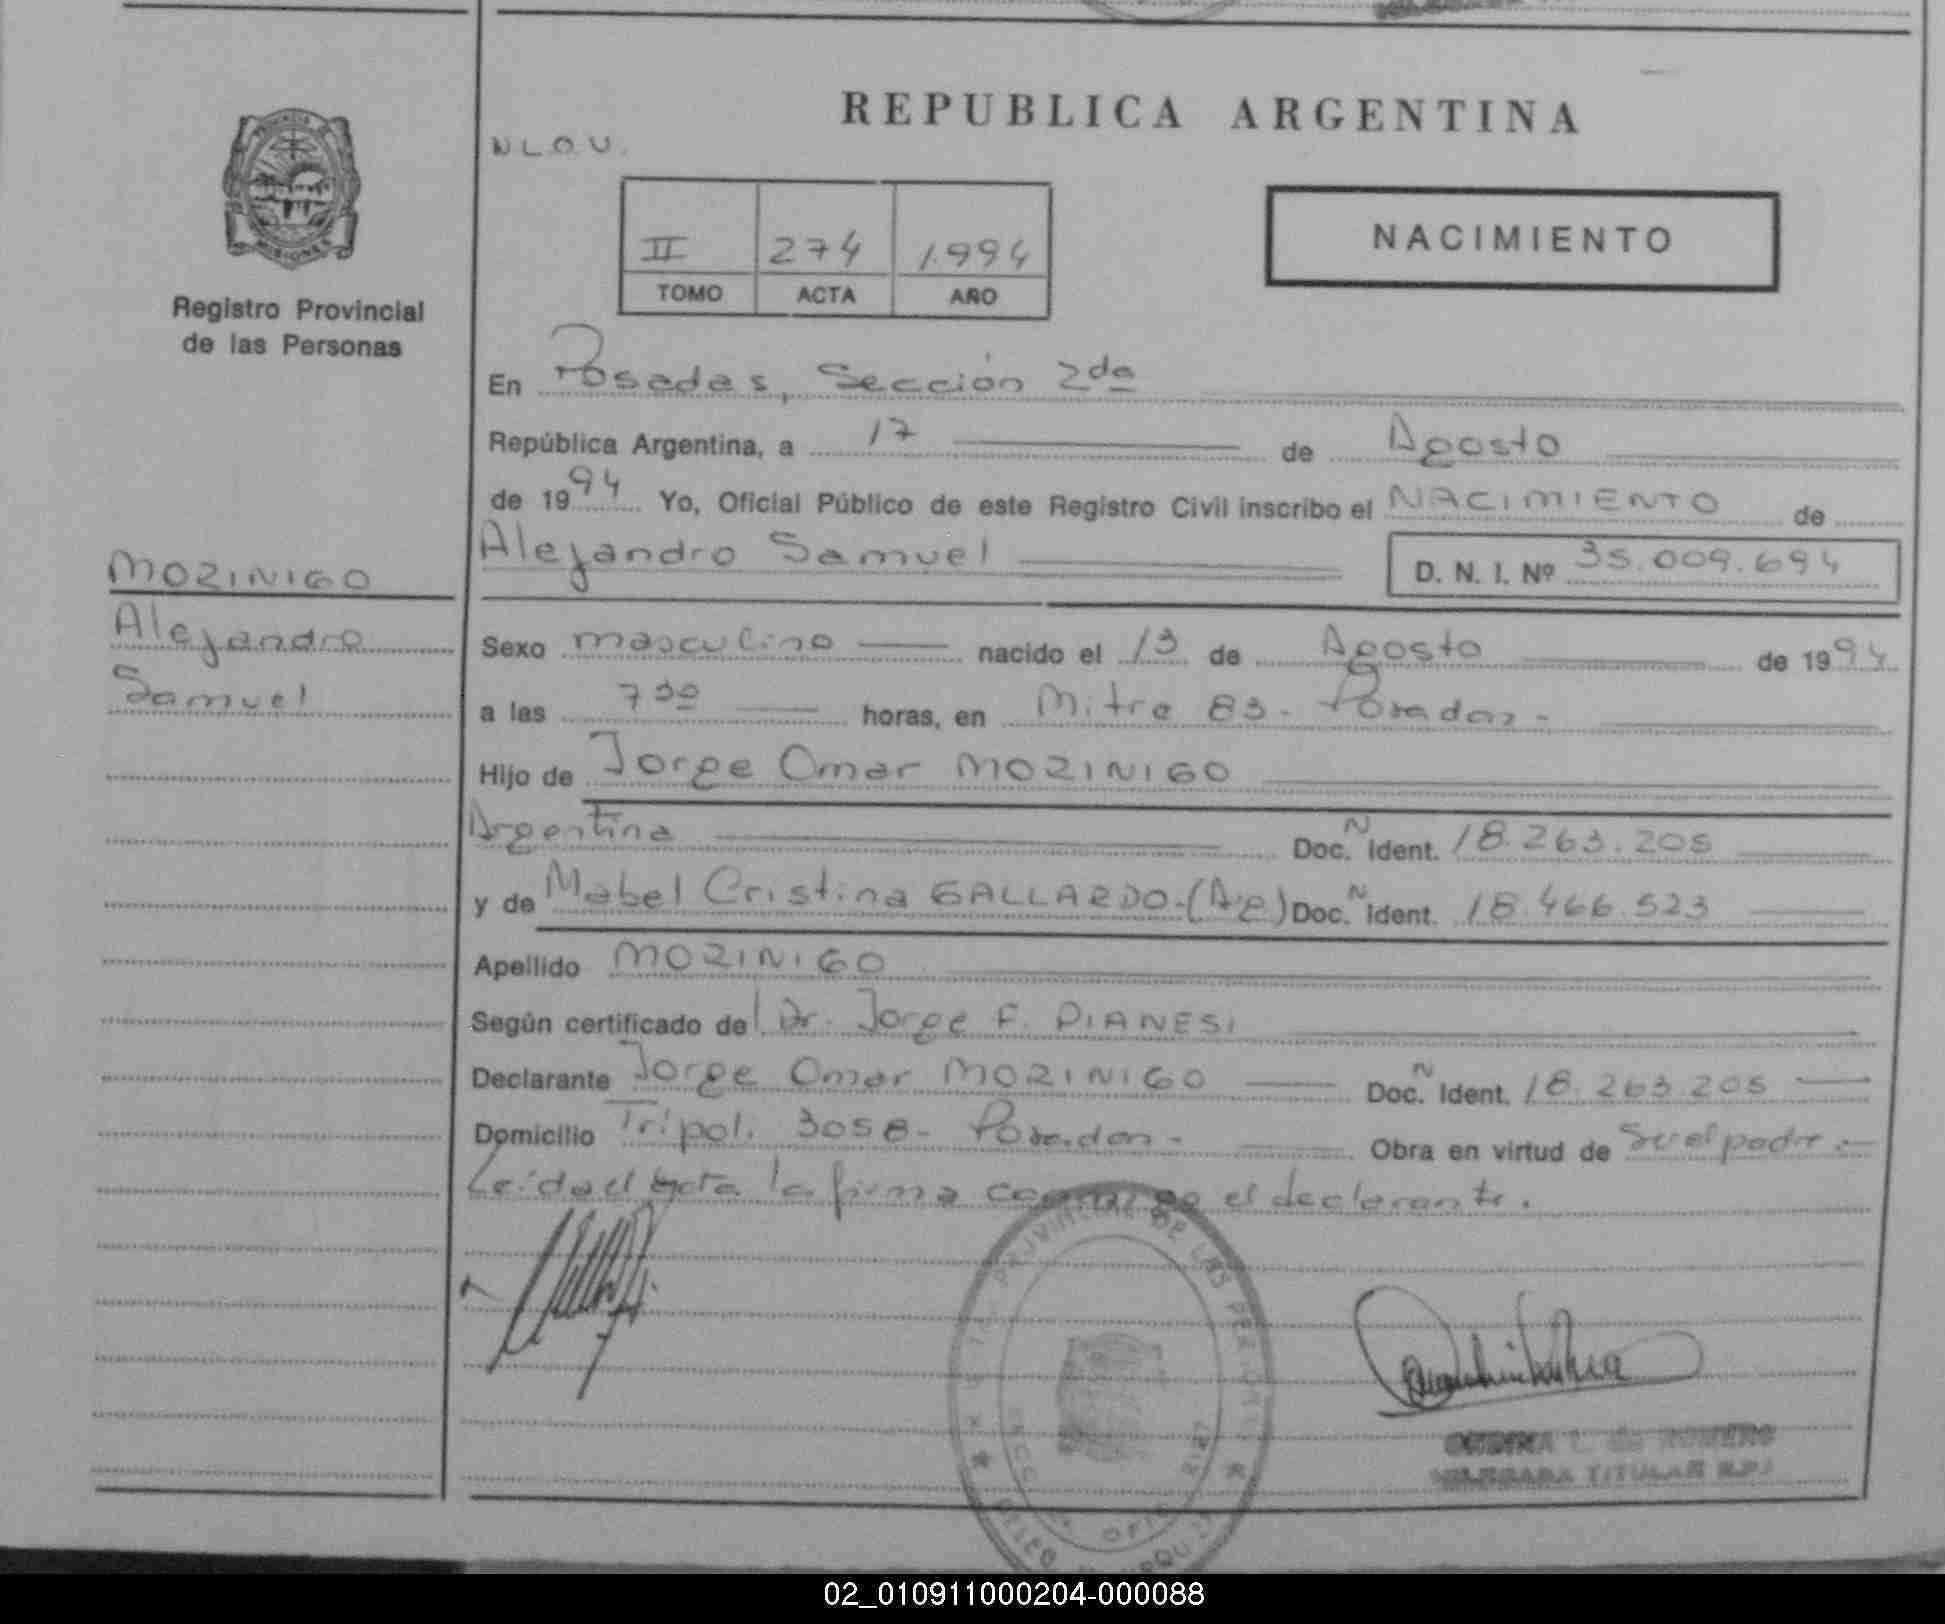 REPUBLICA ARGENTINA
N L O U.
PROVINCIA DE
MISIONES
Registro Provincial
de las Personas
II 274 1.994
TOMO ACTA AÑO
NACIMIENTO
En Posadas, Sección 2da
República Argentina, a 17 de Agosto
de 1994 Yo, Oficial Público de este Registro Civil inscribo el NACIMIENTO de
Alejandro Samuel D. N. I. Nº 35.009.694
MOZINIGO
Alejandro
Samuel
Sexo masculino nacido el 13 de Agosto de 1994
a las 7 30 horas, en Mitre 83 - Posadas -
Hijo de Jorge Omar MOZINIGO
Argentina Doc. N Ident. 18.263.205
y de Mabel Cristina GALLARDO - (Ag) Doc. N Ident. 18.466.523
Apellido MOZINIGO
Según certificado del Dr. Jorge F. PIANESI
Declarante Jorge Omar MOZINIGO Doc. N Ident. 18.263.205
Domicilio Tripoli 3058 - Posadas - Obra en virtud de Ser el padre.-
Leída el Acta la firma conmigo el declarante.
PROVINCIAL DE LAS PERSONAS
ONDINA L. de ROMERO
DELEGADA TITULAR R.P.
02_010911000204-000088